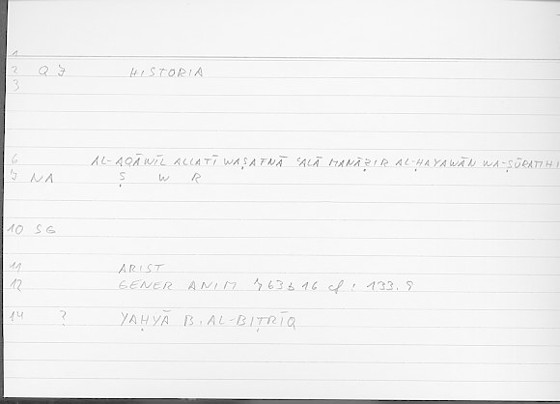 1
2 Q 7 HISTORIA
3
6 AL-AQĀWĪL ALLATĪ WAṢAFNĀ ʿALĀ MANĀẒIR AL-ḤAYAWĀN WA-ṢŪRATIHI
7 NA Ṣ W R
10 SG
11 ARIST
12 GENER ANIM 763b16 cf: 133.9
14 ? YAḤYĀ B. AL-BIṬRĪQ